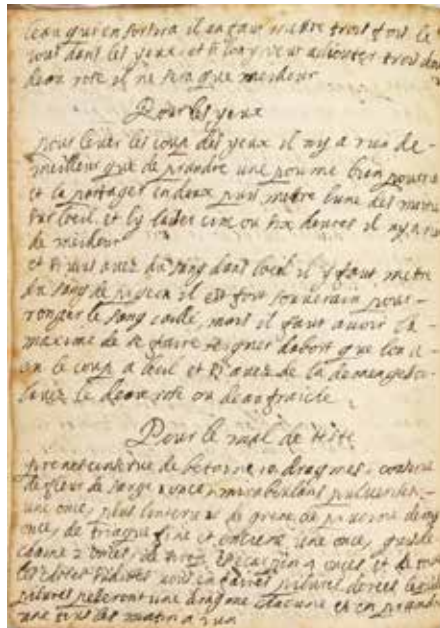 leau qui en sortira il en faut mettre trois fois le
jour dans les yeux, et si lon y veut adiouter trois
deau rose il ne sera que meilleur
Pour les yeux
pour lever les coup des yeux il ny a rien de
meilleur que de prandre une pomme bien pourrie
et la partager en deux puis metre lune des
sur loeil et ly laser cinc ou six heures il ny a
de meileur
et si vous avez du sang dans loeil il y faut metre
du sang de pigeon il est fort souverain pour
ronger le sang caillé, mais il faut avoir la
maxime de se faire seigner dabort que lon
en le coup a leuil et si avez de la demangeson
lavez le deau rose ou deau fraiche
Pour le mal de teste
prenes conserve de betoine 10 dragmes, conserve
de fleur de 1 once, mirabolans pulverises
une once, plus de graine de demy
once, de triaque fine une once,
2 onces, de 4 onces et de
en faires pilures dorees les
pilures peseront une dragme chacune et en prandre
une tous les matin a